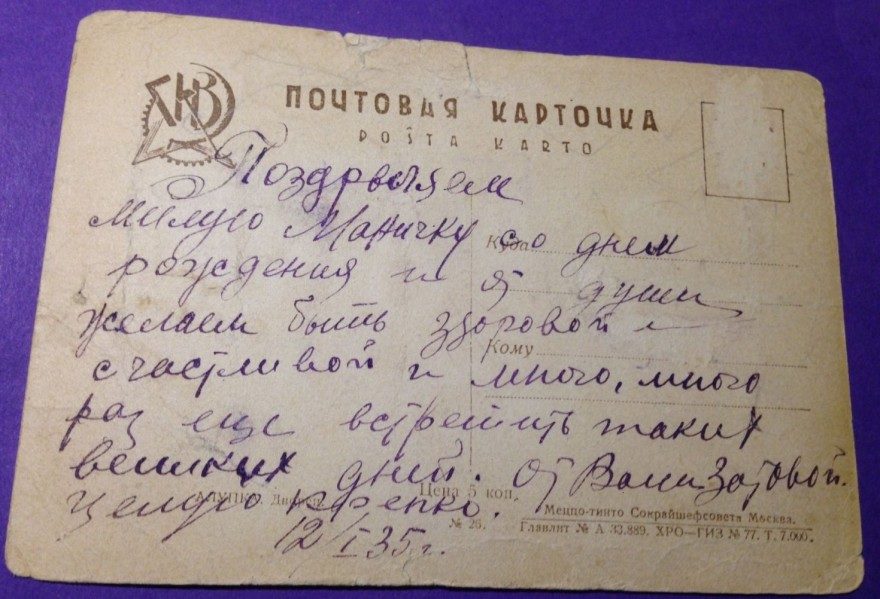 ПОЧТОВАЯ КАРТОЧКА
POŜTA KARTO
Поздровляем
милую Маничку со днем
Куда
рождения и от души
желаем быть здоровой и
Кому
счастливой и много, много
раз еще встретить таких
великих дней. от Вали Зотовой.
АЛУПКА. Дворец.
Цена 5 коп.
целую крепко.
Меццо-тинто Сокрайшефсовета Москва.
№ 26.
Главлит № А 33.889. ХРО—ГИЗ № 77. Т. 7.000.
12/I 35 г.